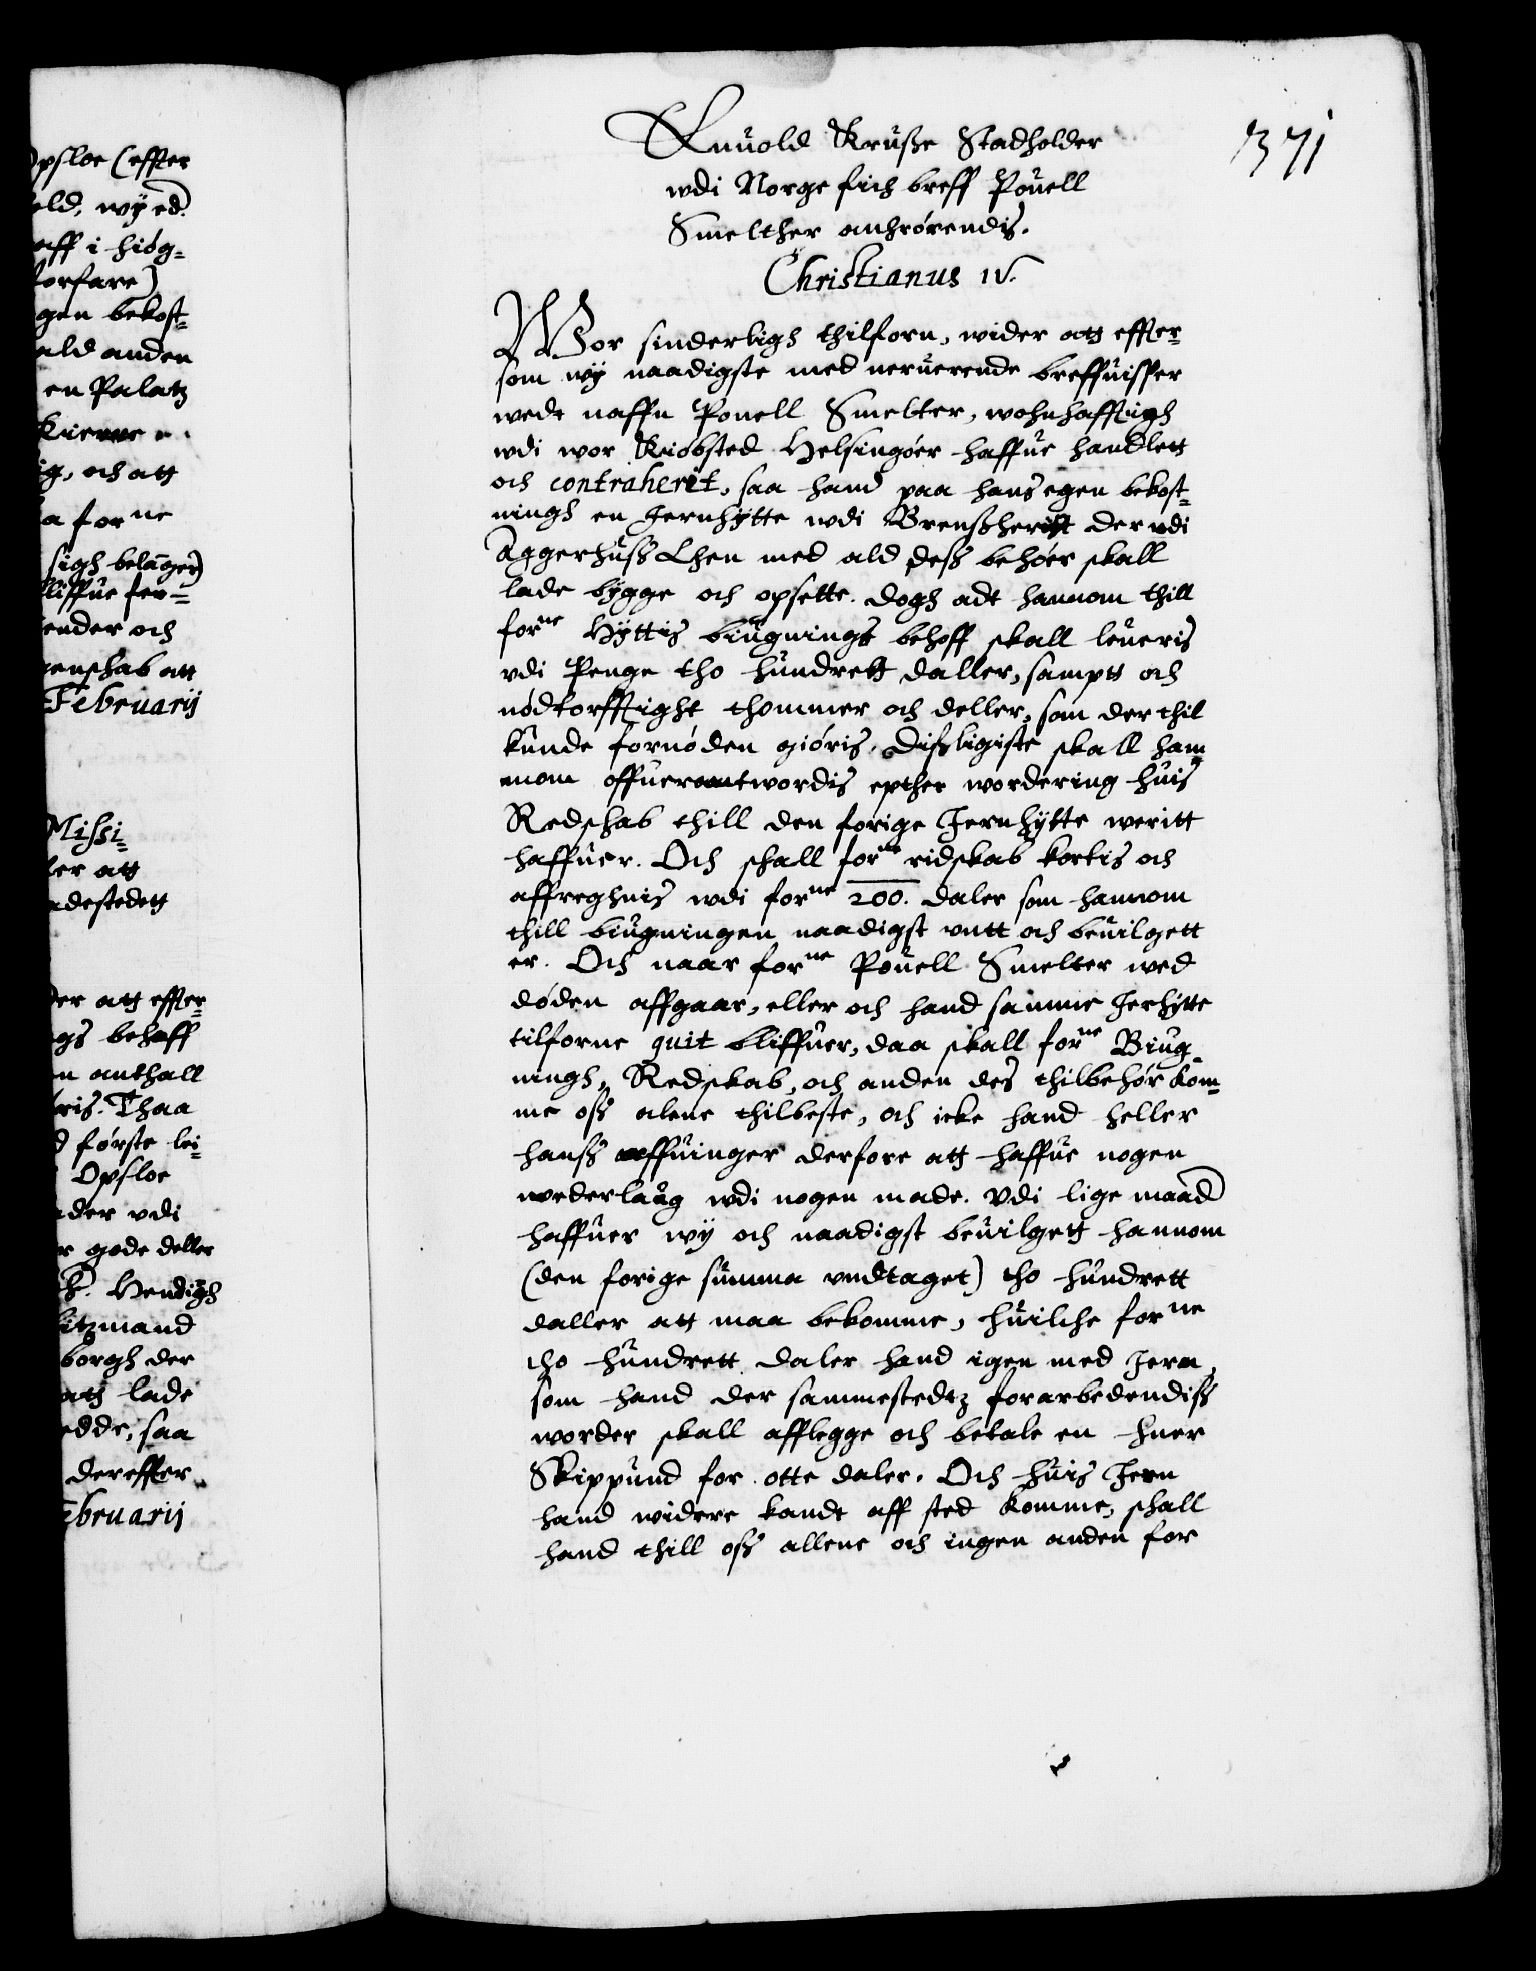 opsloe (effter
eld, wÿ ed.
aff i hiøg-
forfare)
gen bekost-
ald anden
en Palatz
ig, och att
a forne
sigh belanger)
bliffue for-
ender och
enschab att
Februarij
Missi-
ler att
adestedett
der att effter-
gs behoff
en anthall
øris. Thaa
d første lei-
Opsloe
der vdi
r gode deller
Hendigh
itzmand
borgh der
att lade
edde, saa
dereffter
Februarij
371
Enuold Kruße Stadholder
wdi Norge fich breff Pouell
Smelther anhrørendis.
Christianus IV.
Wor sinderligh thilforn, wider att effter-
som wÿ naadigste med neruerende breffuisser
wedt naffn Pouell Smelter, wohnhafftigh
wdi wor Kiøbsted Helsingøer haffue handlett
och contraherit, saa hand paa hans egen bekost-
ningh en Jernhÿtte wdi Brenßherit der wdi
Aggerhuß Lhen med ald deß behøer skall
lade bÿgge och opsette. dogh adt hannom thill
forne Hÿttis biugnings behoff skall leueris
vdi Penge tho hundrett daller, sampt och
nødtorfftight thommer och deller, som der thil
kunde fornøden giøris, dißligiste skall han-
nom offuerantwordis epther wordering huis
Redschab thill den forige Jernhÿtte weritt
haffuer. Och schall forne ridskab kortis och
affreghnis wdi forne 200. daler som hannom
thill biugningen naadigst vntt och beuilgett
er. Och naar forne Pouell Smelter wed
døden affgaar, eller och hand samme Jerhÿtte
tilforne quit bliffuer, daa skall forne Biug-
ningh, Redskab, och anden des thilbehør kom-
me oß alene thilbeste, och icke hand heller
hanß arffuinger derfore att haffue nogen
wederlaug wdi nogen made. Vdi lige maad
haffuer wÿ och naadigst beuilgett hannom
(den forige summa vndtaget) tho hundrett
daller att maa bekomme, huilche forne
tho hundrett daler hand igen med Jern,
som hand der sammestedtz forarbedendiß
worder skall afflegge och betale en huer
Skippund for otte daler. Och huis Jern
hand widere kandt aff sted komme, schall
hand thill oß allene och ingen anden for